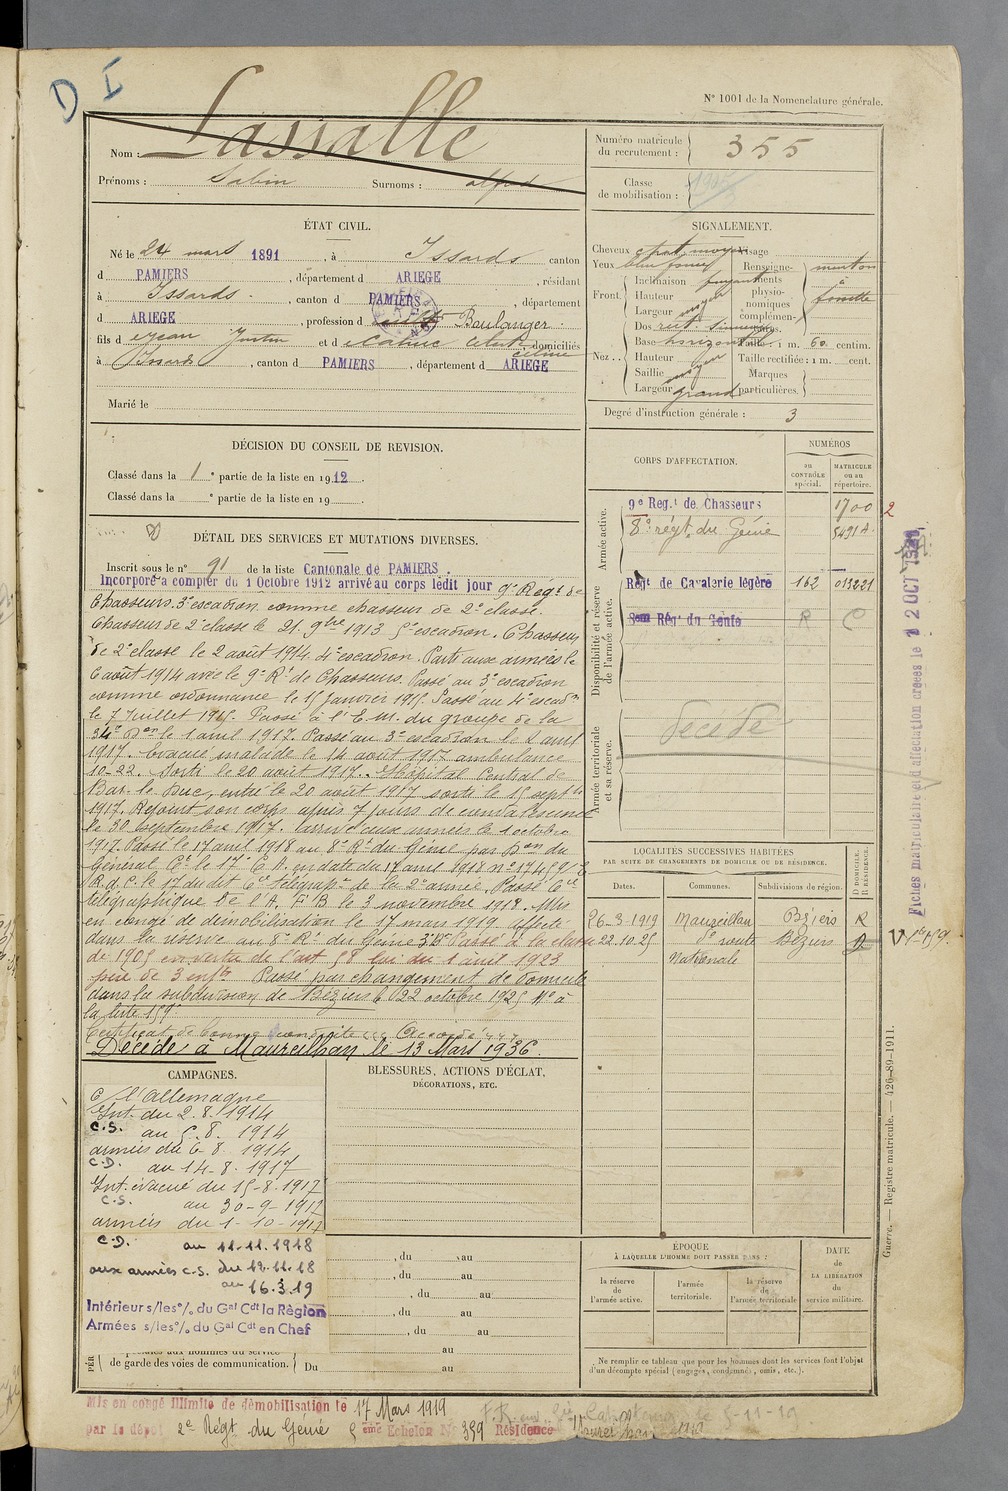 D I
N° 1001 de la Nomenclature générale.
Nom : Lassalle
Prénoms : Sabin Surnoms : alfred
Numéro matricule du recrutement : 355
Classe de mobilisation :
ÉTAT CIVIL.
Né le 24 mars 1891, à Issards canton
d PAMIERS, département d ARIEGE, résidant
à Issards, canton d PAMIERS, département
d ARIEGE, profession d Boulanger
fils d Jean Justin et d domiciliés
à Issards, canton d PAMIERS, département d ARIEGE
Marié le
SIGNALEMENT.
Cheveux chat. moyen Visage
Yeux bleu foncé Renseignements physionomiques complémentaires. menton à fossette
Front. Inclinaison fuyant
Hauteur moyen
Largeur
Nez. Dos rect. sinueux
Base horizontale Taille : 1 m. 60 centim.
Hauteur moyen Taille rectifiée : 1 m. cent.
Saillie Marques particulières.
Largeur grand
Degré d'instruction générale : 3
DÉCISION DU CONSEIL DE REVISION.
Classé dans la 1° partie de la liste en 1912.
Classé dans la ° partie de la liste en 19
CORPS D'AFFECTATION.
NUMÉROS
au CONTRÔLE spécial.
MATRICULE ou au répertoire.
Armée active.
9e Reg.t de Chasseurs 1700 2
8e régt du Génie 5491 A
Disponibilité et réserve de l'armée active.
Régt de Cavalerie légère 162 013221
8eme Régt du Génie R C
Armée territoriale et sa réserve.
décédé
DÉTAIL DES SERVICES ET MUTATIONS DIVERSES.
Inscrit sous le n° 91 de la liste Cantonale de PAMIERS.
Incorporé à compter du 1 Octobre 1912 arrivé au corps ledit jour 9e Régt de
Chasseurs. 3e escadron comme chasseur de 2e classe.
Chasseur de 2e classe le 21. 9bre 1913 5e escadron. Chasseur
de 2e classe le 2 août 1914. 4e escadron. Parti aux armées le
6 août 1914 avec le 9e Rt de Chasseurs. Passé au 3e escadron
comme ordonnance le 15 janvier 1915. Passé au 4e escadn
le 7 Juillet 1915. Passé à l'E.M. du groupe de la
34e Don le 1 avril 1917. Passé au 3e escadron le 2 avril
1917. Evacué malade le 14 août 1917 ambulance
10-22. Sorti le 20 août 1917. Hôpital Central de
Bar-le-Duc, entré le 20 août 1917 sorti le 15 septbre
1917. Rejoint son corps après 7 jours de convalescence
le 30 septembre 1917. Parti aux armées le 1 octobre
1917. Passé le 17 avril 1918 au 8e Rt du Génie par Don du
Général Ct le 17e C.A. en date du 17 avril 1918 n° 1745
R. d. C. le 17 dudit Cie Télégraphe de la 2e armée. Passé Cie
télégraphique de l'A. F. B le 3 novembre 1918. Mis
en congé de démobilisation le 17 mars 1919. affecté
dans la réserve au 8e Rt du Génie. Passé à la classe
de 1905 en vertu de l'art 58 loi du 1 avril 1923
père de 3 enfts. Passé par changement de domicile
dans la subdivision de Béziers le 22 octobre 1925 N° à
la liste 159.
Certificat de bonne conduite Accordé
Décédé à Maureilhan le 13 Mars 1936.
LOCALITÉS SUCCESSIVES HABITÉES
PAR SUITE DE CHANGEMENTS DE DOMICILE OU DE RÉSIDENCE.
Dates. Communes. Subdivisions de région. D DOMICILE. R RÉSIDENCE.
26-3-1919 Maureilhan Béziers R
22.10.25 de route Nationale Béziers D
Fiches matriculaire et d'affectation créées le 12 OCT 19
CAMPAGNES.
C/ l'Allemagne
Int. du 2.8.1914
C.S. au 5.8.1914
armées du 6-8.1914
C.D. au 14-8.1917
Int. évacué du 15-8-1917
C.S. au 30-9-1917
armées du 1-10-1917
C.D. au 11-11-1918
aux armées C.S. du 12-11-18
au 16.3.19
Intérieur s/les °/o du Gal Cdt la Région
Armées s/les °/o du Gal Cdt en Chef
BLESSURES, ACTIONS D'ÉCLAT,
DÉCORATIONS, ETC.
, du au
, du au
, du au
, du au
, du au
au
de garde des voies de communication. Du au
ÉPOQUE
À LAQUELLE L'HOMME DOIT PASSER DANS :
la réserve de l'armée active.
l'armée territoriale.
la réserve de l'armée territoriale
DATE de LA LIBÉRATION du service militaire.
Ne remplir ce tableau que pour les hommes dont les services font l'objet
d'un décompte spécial (engagés, condamnés, omis, etc.).
Guerre. — Registre matricule. — 426-89-1911.
Mis en congé illimité de démobilisation le 17 Mars 1919
par le dépôt 2e Régt du Génie 5ème Echelon N° 359 Résidence